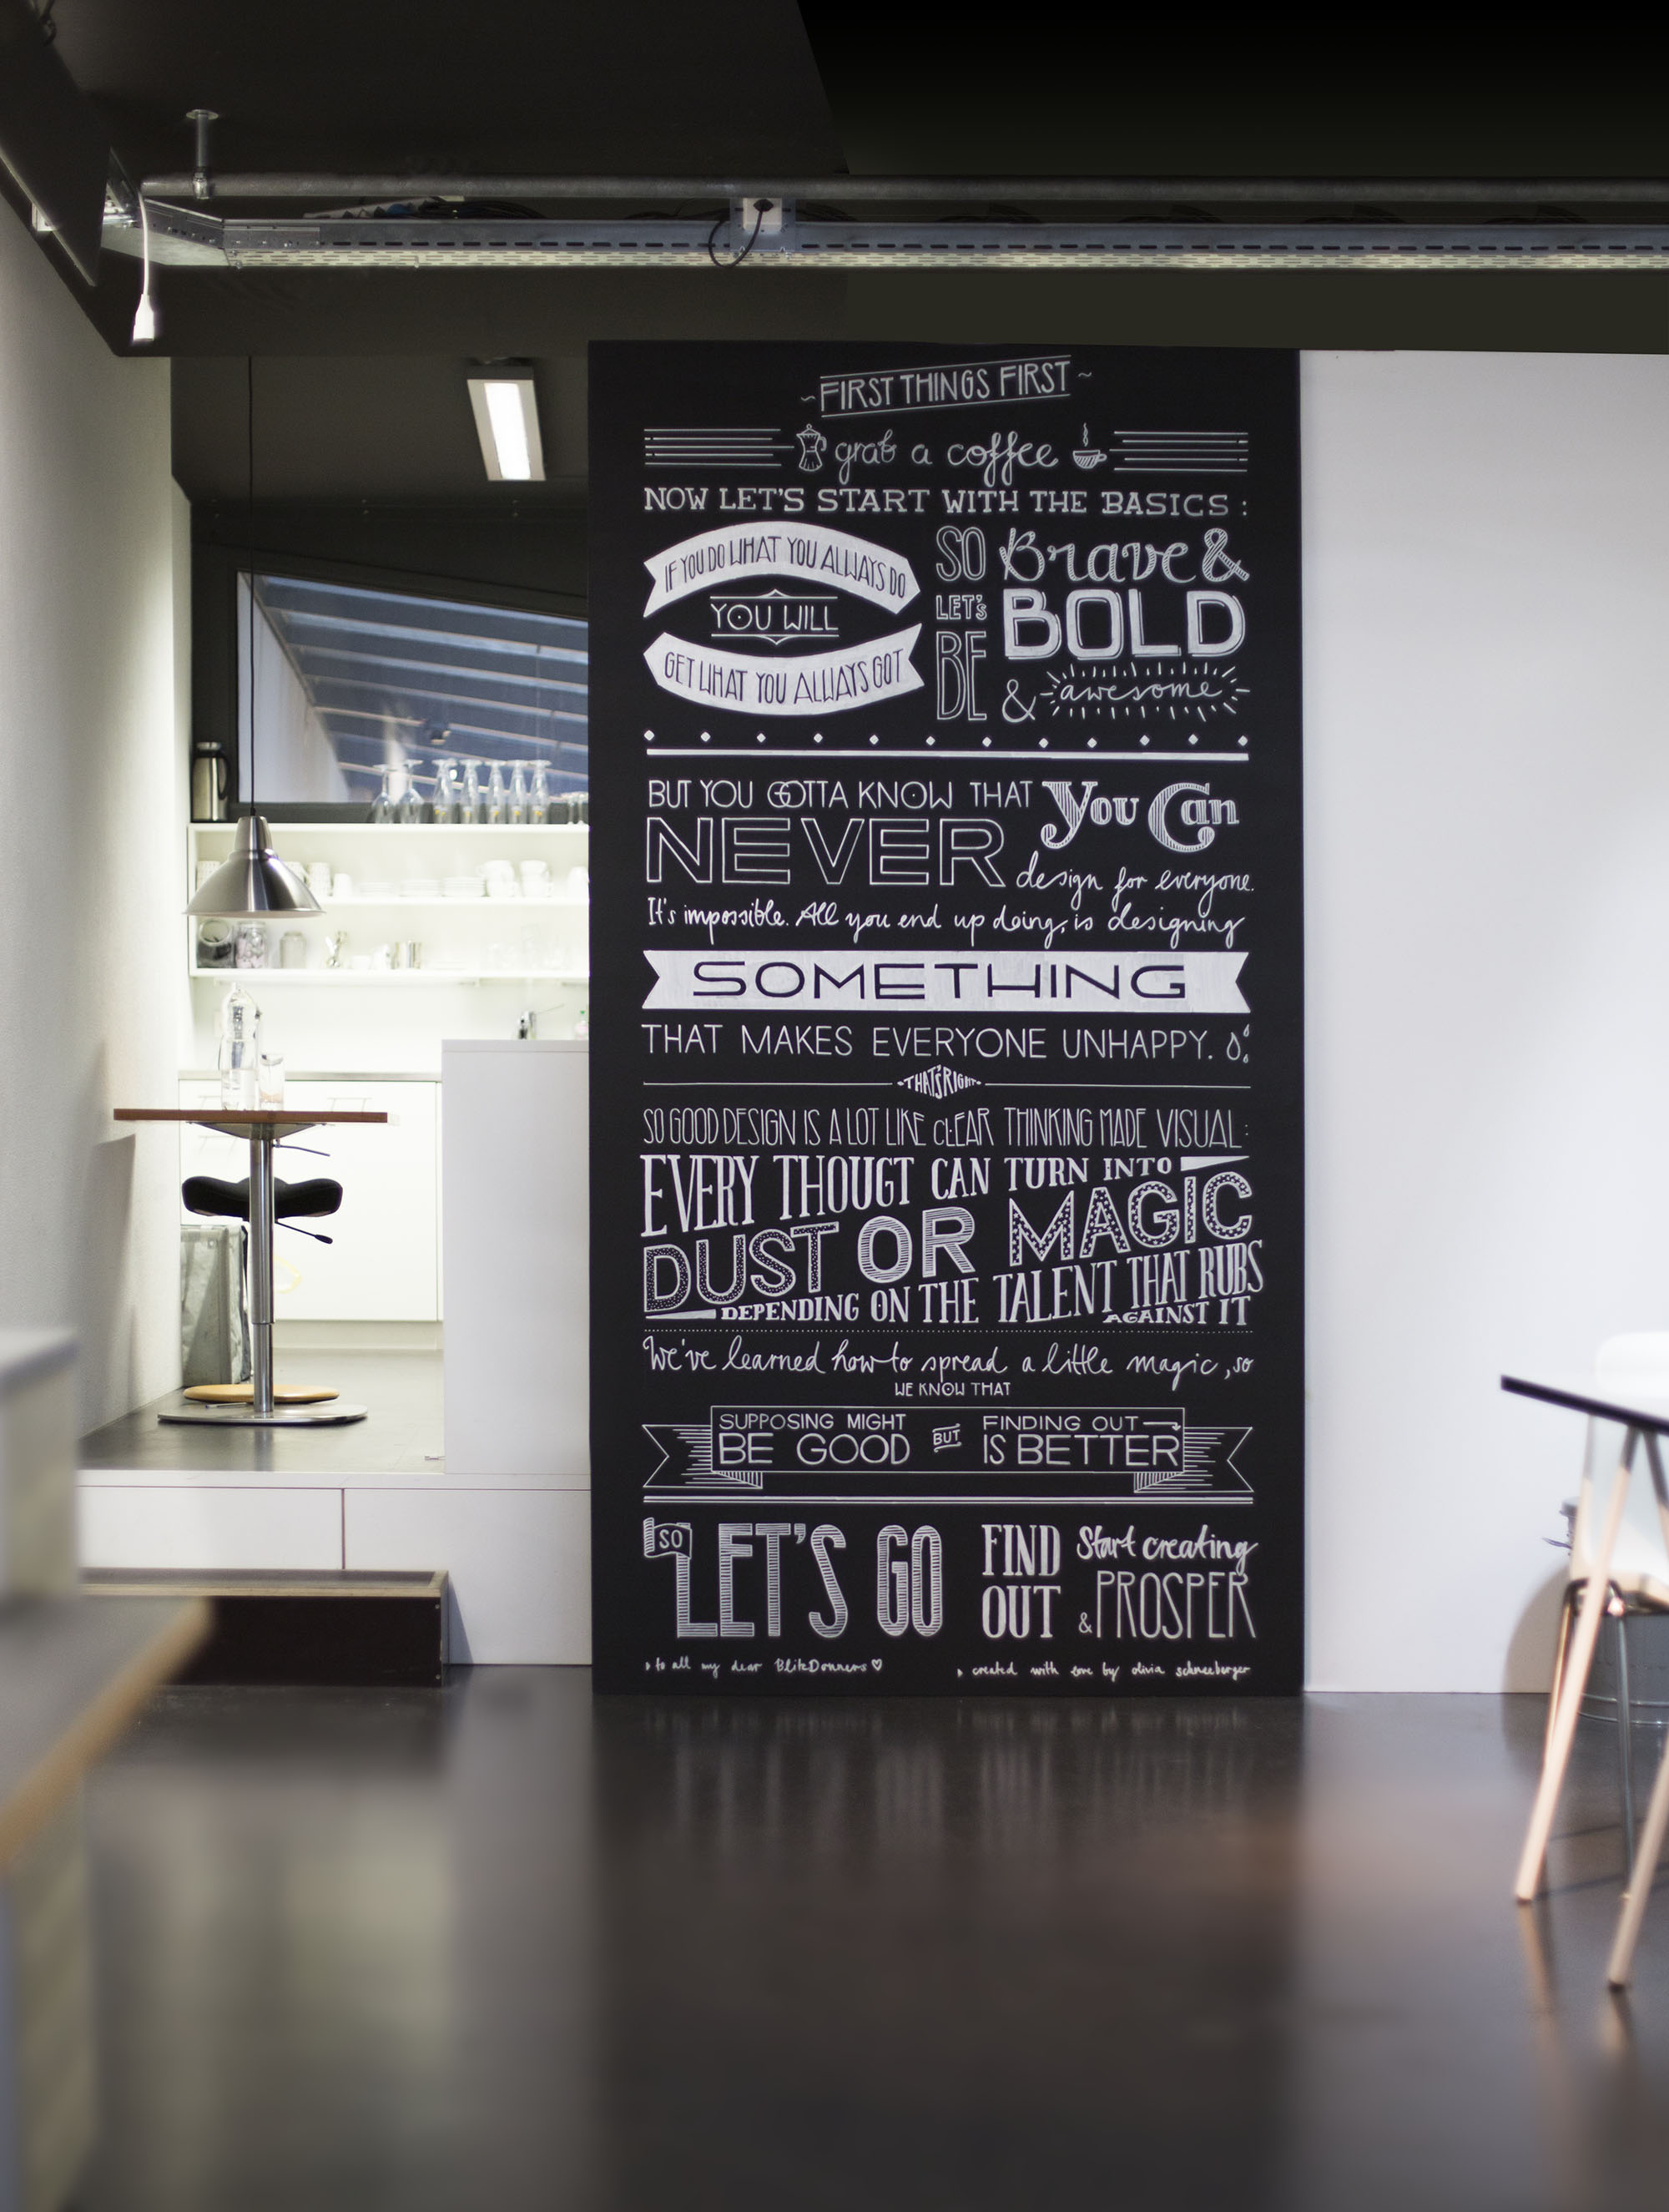 ~FIRST THINGS FIRST~
grab a coffee
NOW LET'S START WITH THE BASICS:
IF YOU DO WHAT YOU ALWAYS DO
YOU WILL
GET WHAT YOU ALWAYS GOT
SO LET'S BE
Brave &
BOLD
& awesome
BUT YOU GOTTA KNOW THAT You Can
NEVER design for everyone.
It's impossible. All you end up doing, is designing
SOMETHING
THAT MAKES EVERYONE UNHAPPY.
THAT'S RIGHT
SO GOOD DESIGN IS A LOT LIKE CLEAR THINKING MADE VISUAL:
EVERY THOUGT CAN TURN INTO
DUST OR MAGIC
DEPENDING ON THE TALENT THAT RUBS
AGAINST IT
We've learned how to spread a little magic, so
WE KNOW THAT
SUPPOSING MIGHT BE GOOD
BUT
FINDING OUT IS BETTER
SO LET'S GO
FIND OUT
Start creating
& PROSPER
to all my dear BlitzDonners ♡
created with love by olivia schneeberger